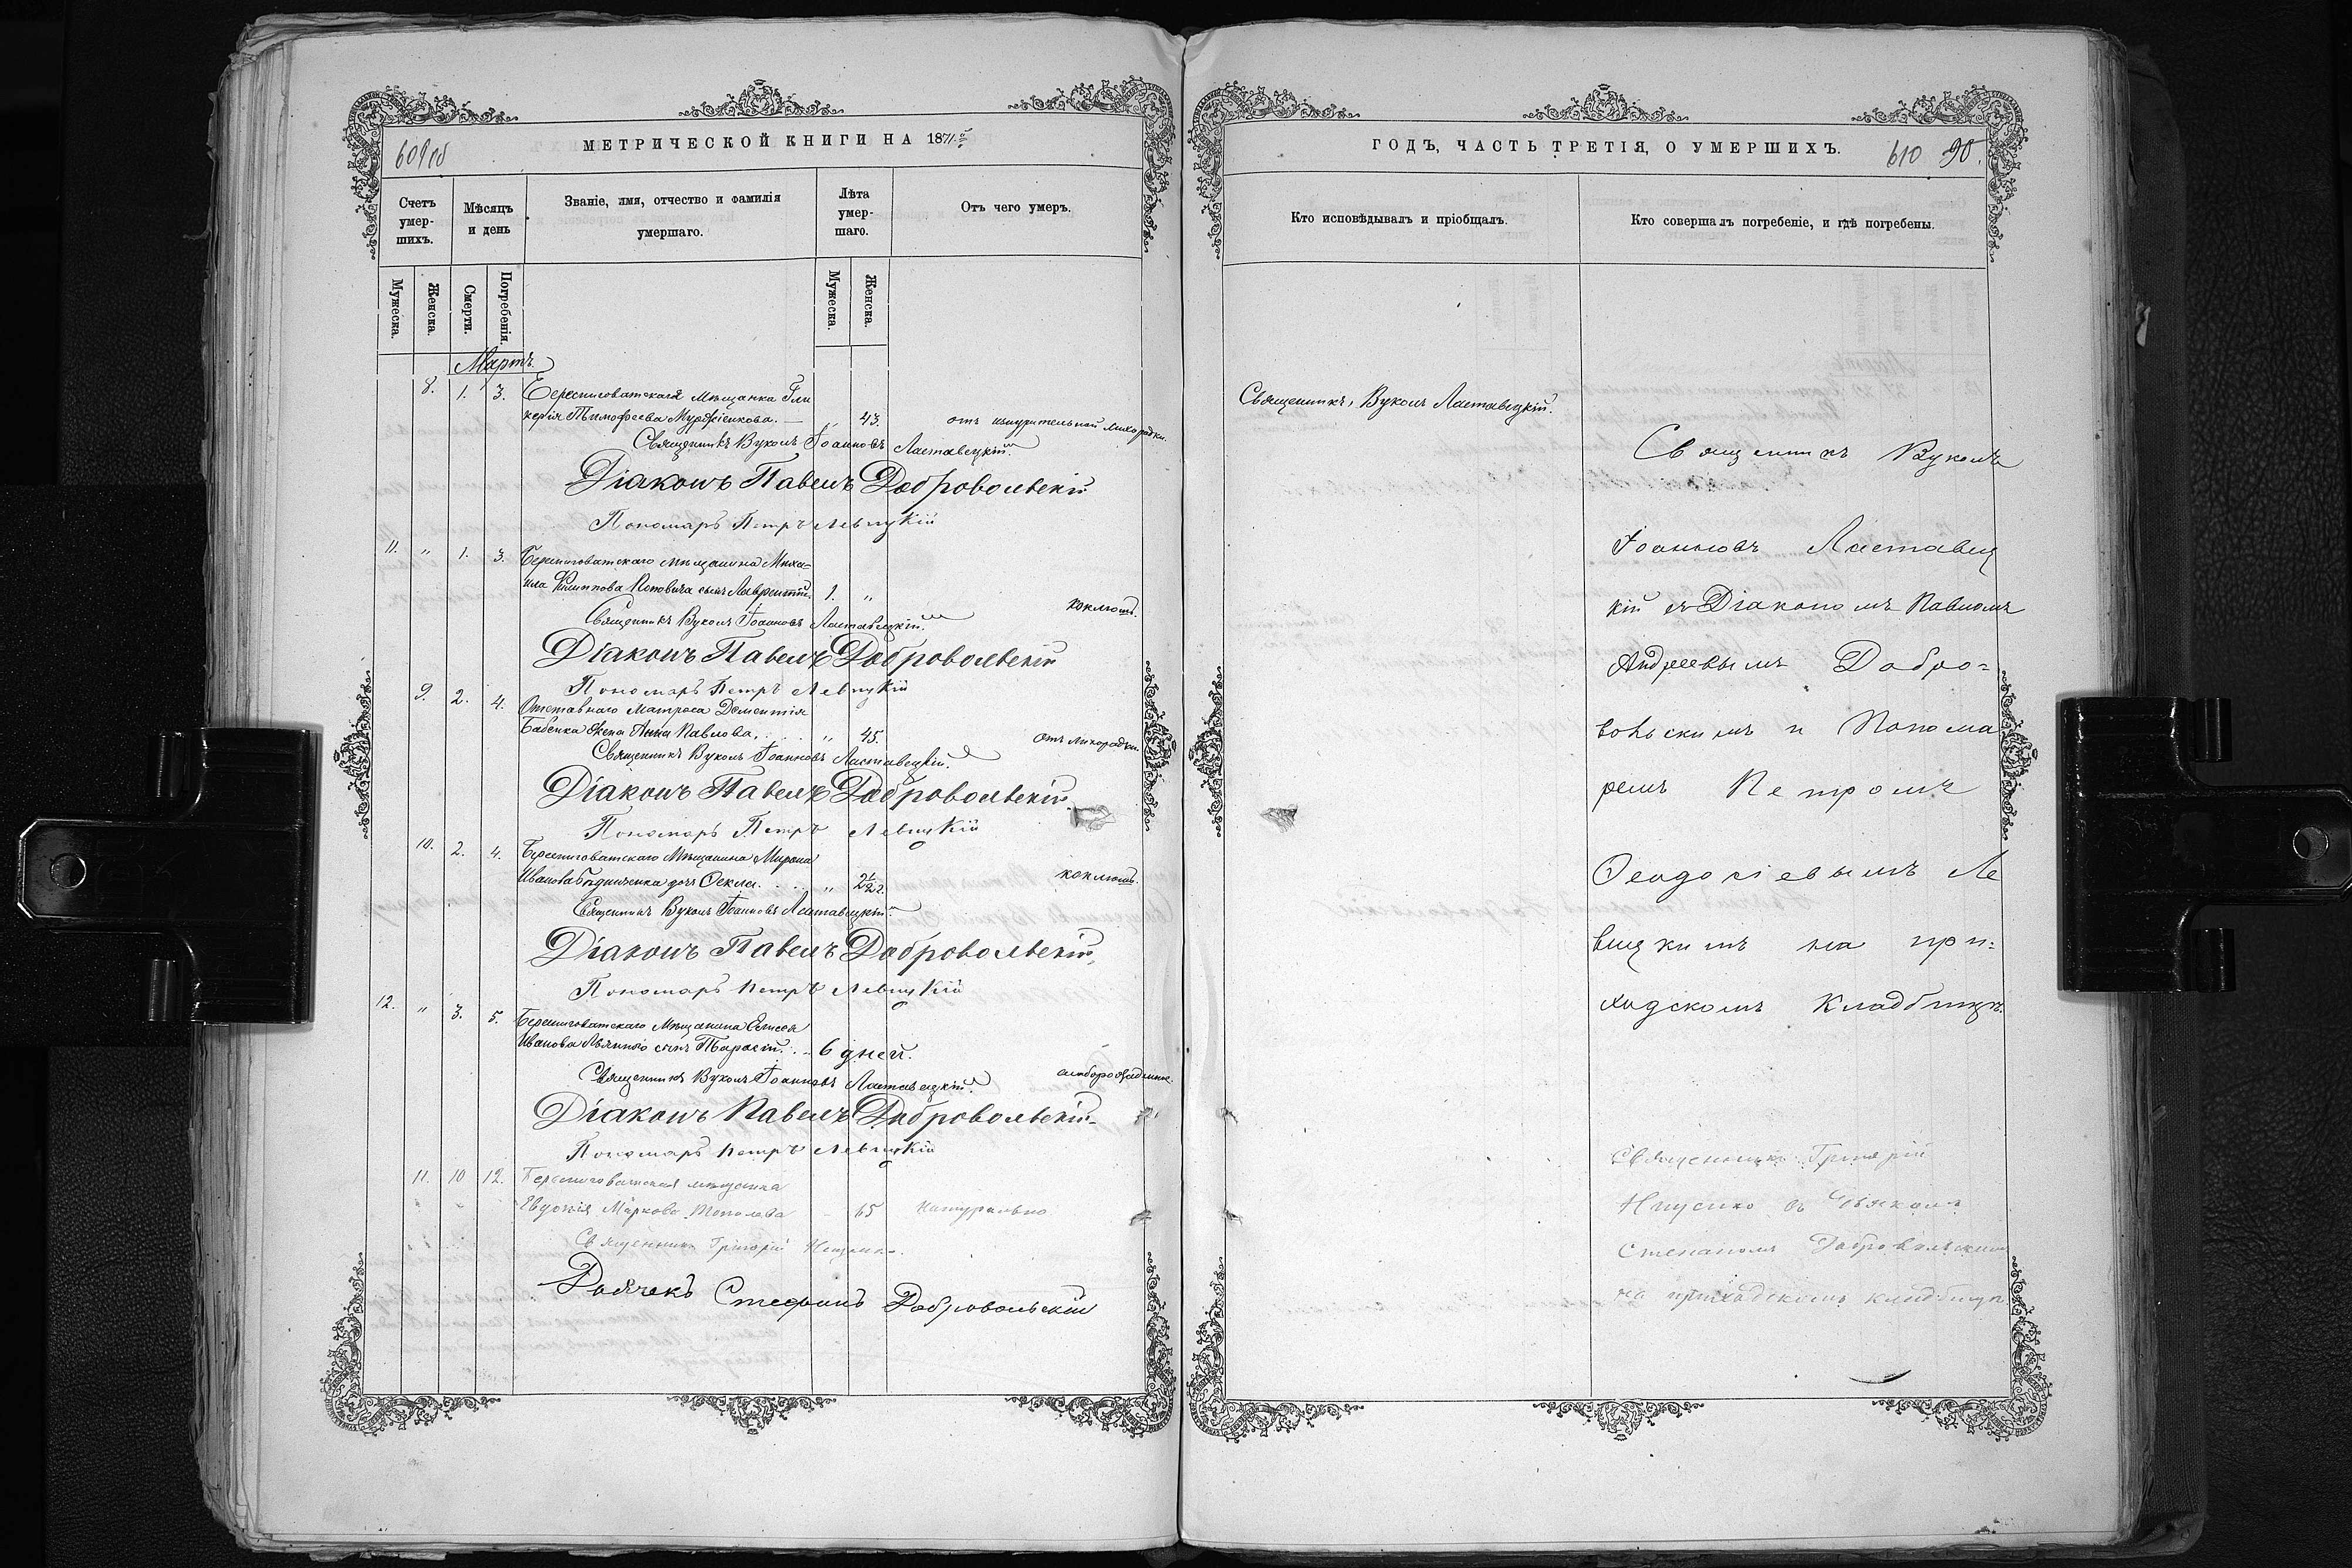 609 об
МЕТРИЧЕСКОЙ КНИГИ НА 1871й
Счетъ умер-шихъ.
Мѣсяцъ и день
Званіе, имя, отчество и фамилія умершаго.
Лѣта умер-шаго.
Отъ чего умеръ.
Мужеска.
Женска.
Смерти.
Погребенія.
Мужеска.
Женска.
Мартъ
8. 1. 3. Мѣщанка Гли
керія Тимофеева 43. отъ изнурительной лихорадки.
Священникъ Вуколъ Іоанновъ Ластавецкій.
Діаконъ Павелъ Добровольскій
Пономарь Петръ Левицкій
11. " 1. 3. мѣщанина Миха-
ила Филиппова Поповича сынъ Лаврентій. 1. " коклюшъ.
Священникъ Вуколъ Іоанновъ Ластавецкій.
Діаконъ Павелъ Добровольскій
Пономарь Петръ Левицкій
9. 2. 4. Отставнаго Матроса Дементія
Бабенка жена Анна Павлова. " 45. отъ лихорадки.
Священникъ Вуколъ Іоанновъ Ластавецкій.
Діаконъ Павелъ Добровольскій
Пономарь Петръ Левицкій
10. 2. 4. Мѣщанина Мирона
Иванова дочь Ѳекла. " 2½ коклюшъ.
Священникъ Вуколъ Іоанновъ Ластавецкій.
Діаконъ Павелъ Добровольскій
Пономарь Петръ Левицкій
12. " 3. 5. Мѣщанина
Иванова сынъ Тарасій. 6 дней.
Священникъ Вуколъ Іоанновъ Ластавецкій.
Діаконъ Павелъ Добровольскій
Пономарь Петръ Левицкій
11. 10 12. мѣщанка
Евдокія Маркова 65 Натурально
Священникъ Григорій
Дьячекъ Стефанъ Добровольскій
ГОДЪ, ЧАСТЬ ТРЕТІЯ, О УМЕРШИХЪ.
610 90.
Кто исповѣдывалъ и пріобщалъ.
Кто совершалъ погребеніе, и гдѣ погребены.
Священникъ, Вуколъ Ластавецкій.
Священникъ Вуколъ
Іоанновъ Ластавец
кій съ Діакономъ Павломъ
Андреевымъ Добро=
вольскимъ и Понома
ремъ Петромъ
Ѳеодосіевымъ Ле
вицкимъ на при=
ходскомъ Кладбищѣ.
Священникъ Григорій
съ Дьякомъ
Степаномъ Добровольскимъ
на приходскомъ кладбищѣ.